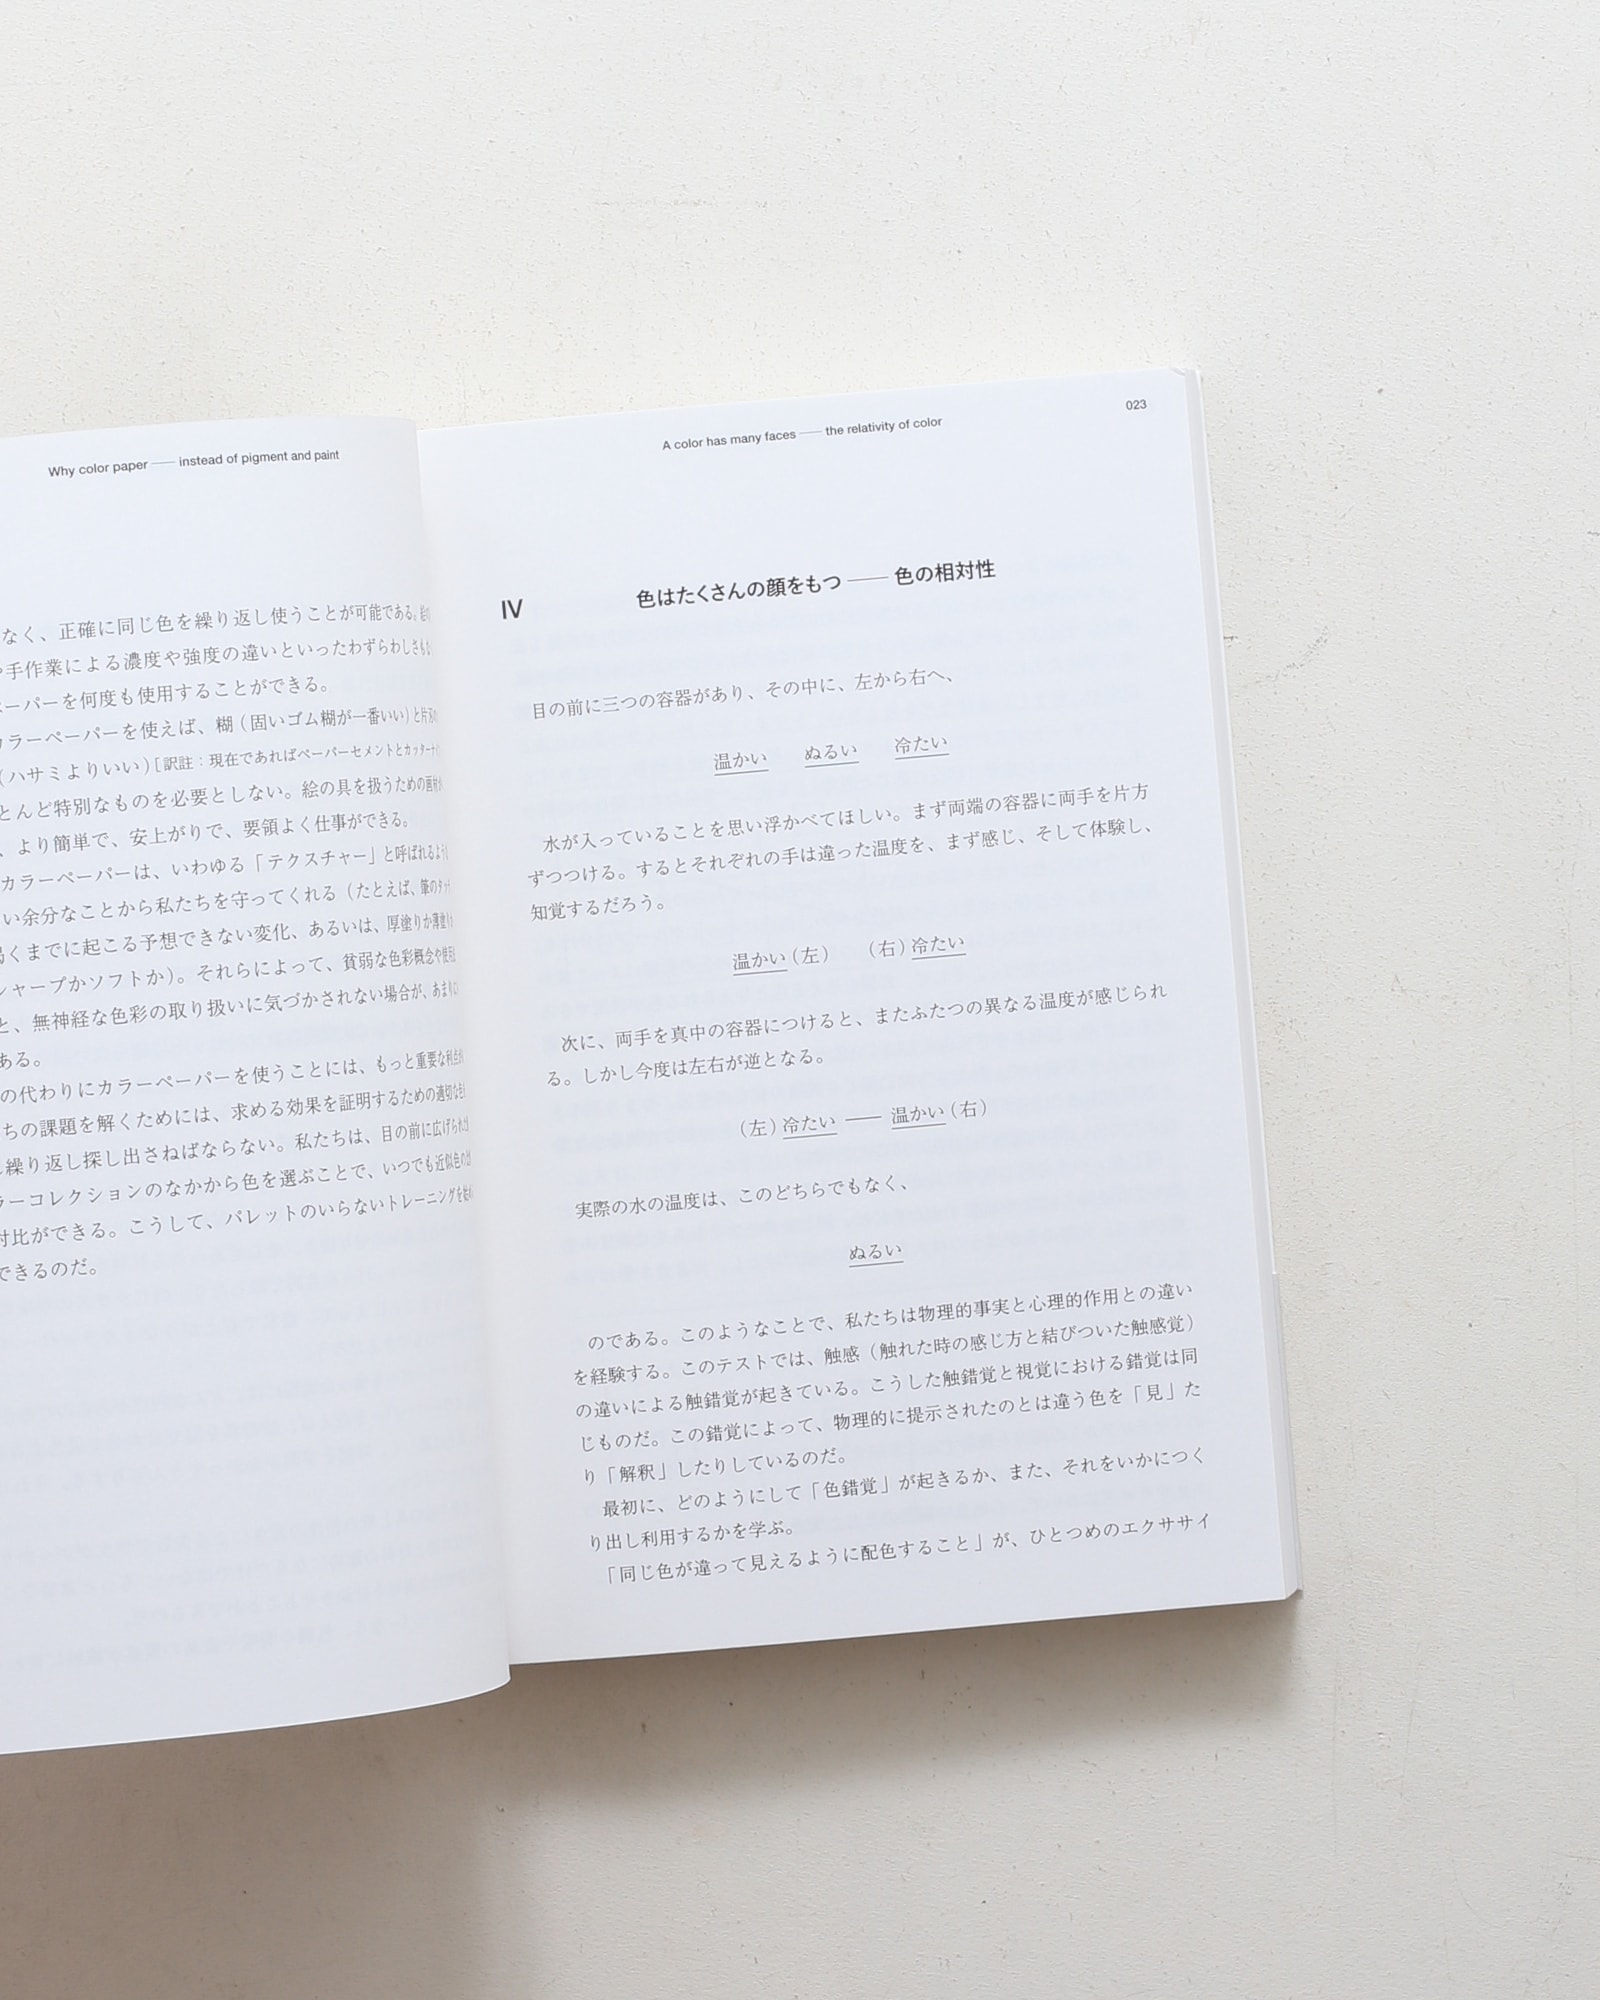 Why color paper —— instead of pigment and paint
なく、正確に同じ色を繰り返し使うことが可能である。
手作業による濃度や強度の違いといったわずらわしさも
ーパーを何度も使用することができる。
カラーペーパーを使えば、糊（固いゴム糊が一番いい）と片刃の
（ハサミよりいい）［訳註：現在であればペーパーセメントとカッターナイ
とんど特別なものを必要としない。絵の具を扱うための画材
、より簡単で、安上がりで、要領よく仕事ができる。
カラーペーパーは、いわゆる「テクスチャー」と呼ばれるよう
い余分なことから私たちを守ってくれる（たとえば、筆のタッチ
くまでに起こる予想できない変化、あるいは、厚塗りか薄塗り
シャープかソフトか）。それらによって、貧弱な色彩概念や使用
と、無神経な色彩の取り扱いに気づかされない場合が、あまりに
ある。
の代わりにカラーペーパーを使うことには、もっと重要な利点が
ちの課題を解くためには、求める効果を証明するための適切な色
繰り返し探し出さねばならない。私たちは、目の前に広げられた
ラーコレクションのなかから色を選ぶことで、いつでも近似色の
対比ができる。こうして、パレットのいらないトレーニングを始め
できるのだ。
A color has many faces —— the relativity of color
023
IV
色はたくさんの顔をもつ —— 色の相対性
目の前に三つの容器があり、その中に、左から右へ、
温かい ぬるい 冷たい
水が入っていることを思い浮かべてほしい。まず両端の容器に両手を片方
ずつつける。するとそれぞれの手は違った温度を、まず感じ、そして体験し、
知覚するだろう。
温かい（左） （右）冷たい
次に、両手を真中の容器につけると、またふたつの異なる温度が感じられ
る。しかし今度は左右が逆となる。
（左）冷たい —— 温かい（右）
実際の水の温度は、このどちらでもなく、
ぬるい
のである。このようなことで、私たちは物理的事実と心理的作用との違い
を経験する。このテストでは、触感（触れた時の感じ方と結びついた触感覚）
の違いによる触錯覚が起きている。こうした触錯覚と視覚における錯覚は同
じものだ。この錯覚によって、物理的に提示されたのとは違う色を「見」た
り「解釈」したりしているのだ。
最初に、どのようにして「色錯覚」が起きるか、また、それをいかにつく
り出し利用するかを学ぶ。
「同じ色が違って見えるように配色すること」が、ひとつめのエクササイ